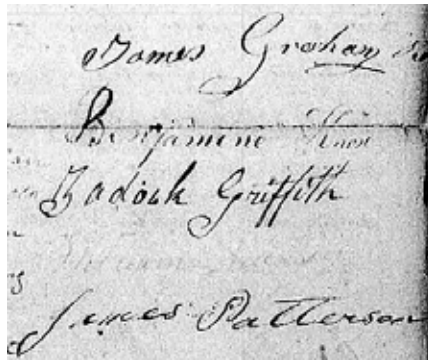 James Graham
Benjamine Knox
Zadock Griffith
James Patterson